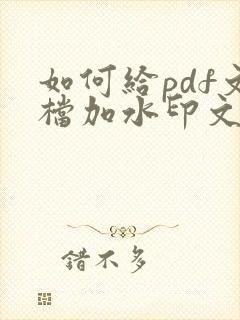 如何給pdf文
檔加水印文
錯不多